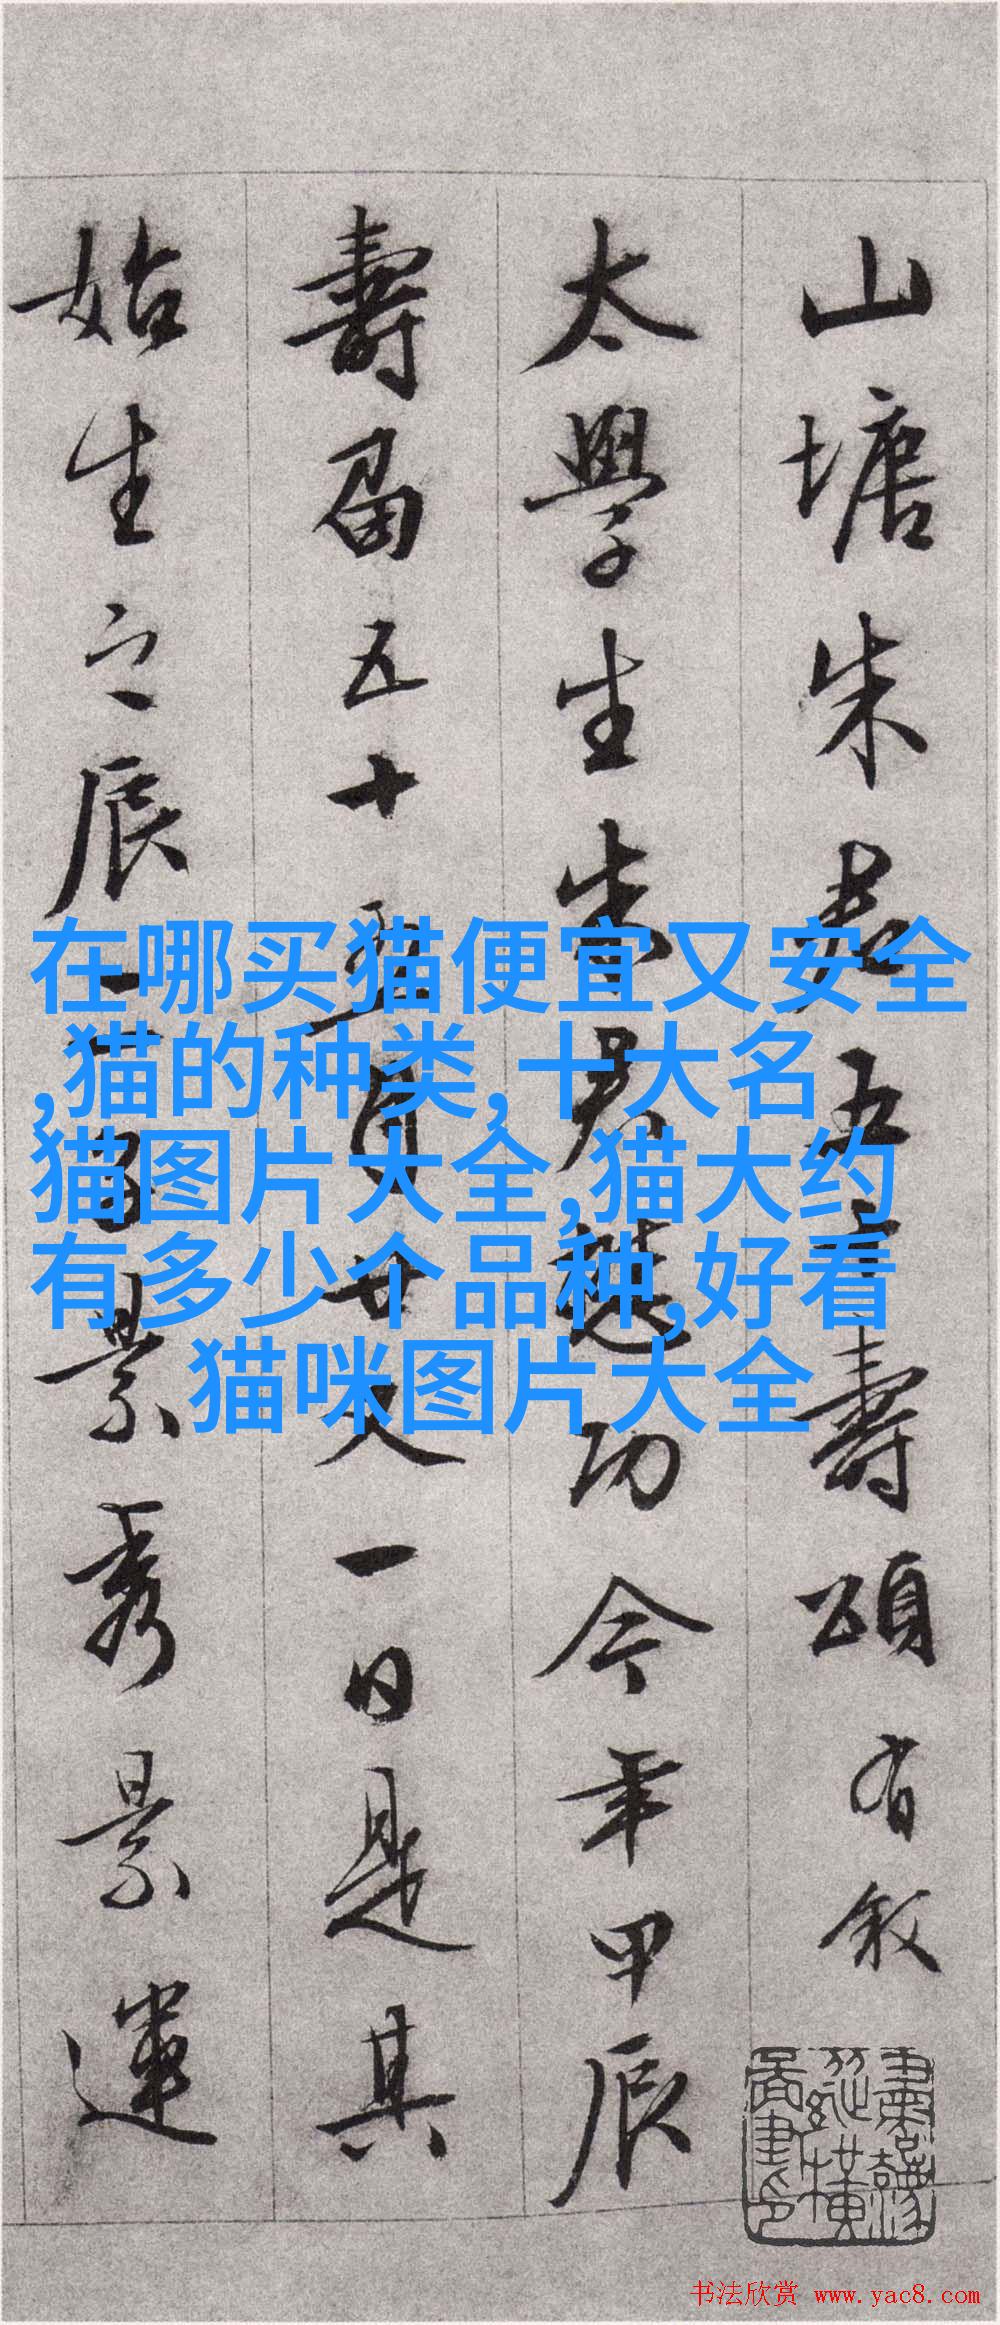 山塘朱君五十壽頌有敘
太學生朱君功今年甲辰
壽五十月廿又一日是其
始生之辰景秀景運
在哪买猫便宜又安全
,猫的种类,十大名
猫图片大全,猫大约
有多少个品种,好看
猫咪图片大全
书法欣赏 www.yac8.com